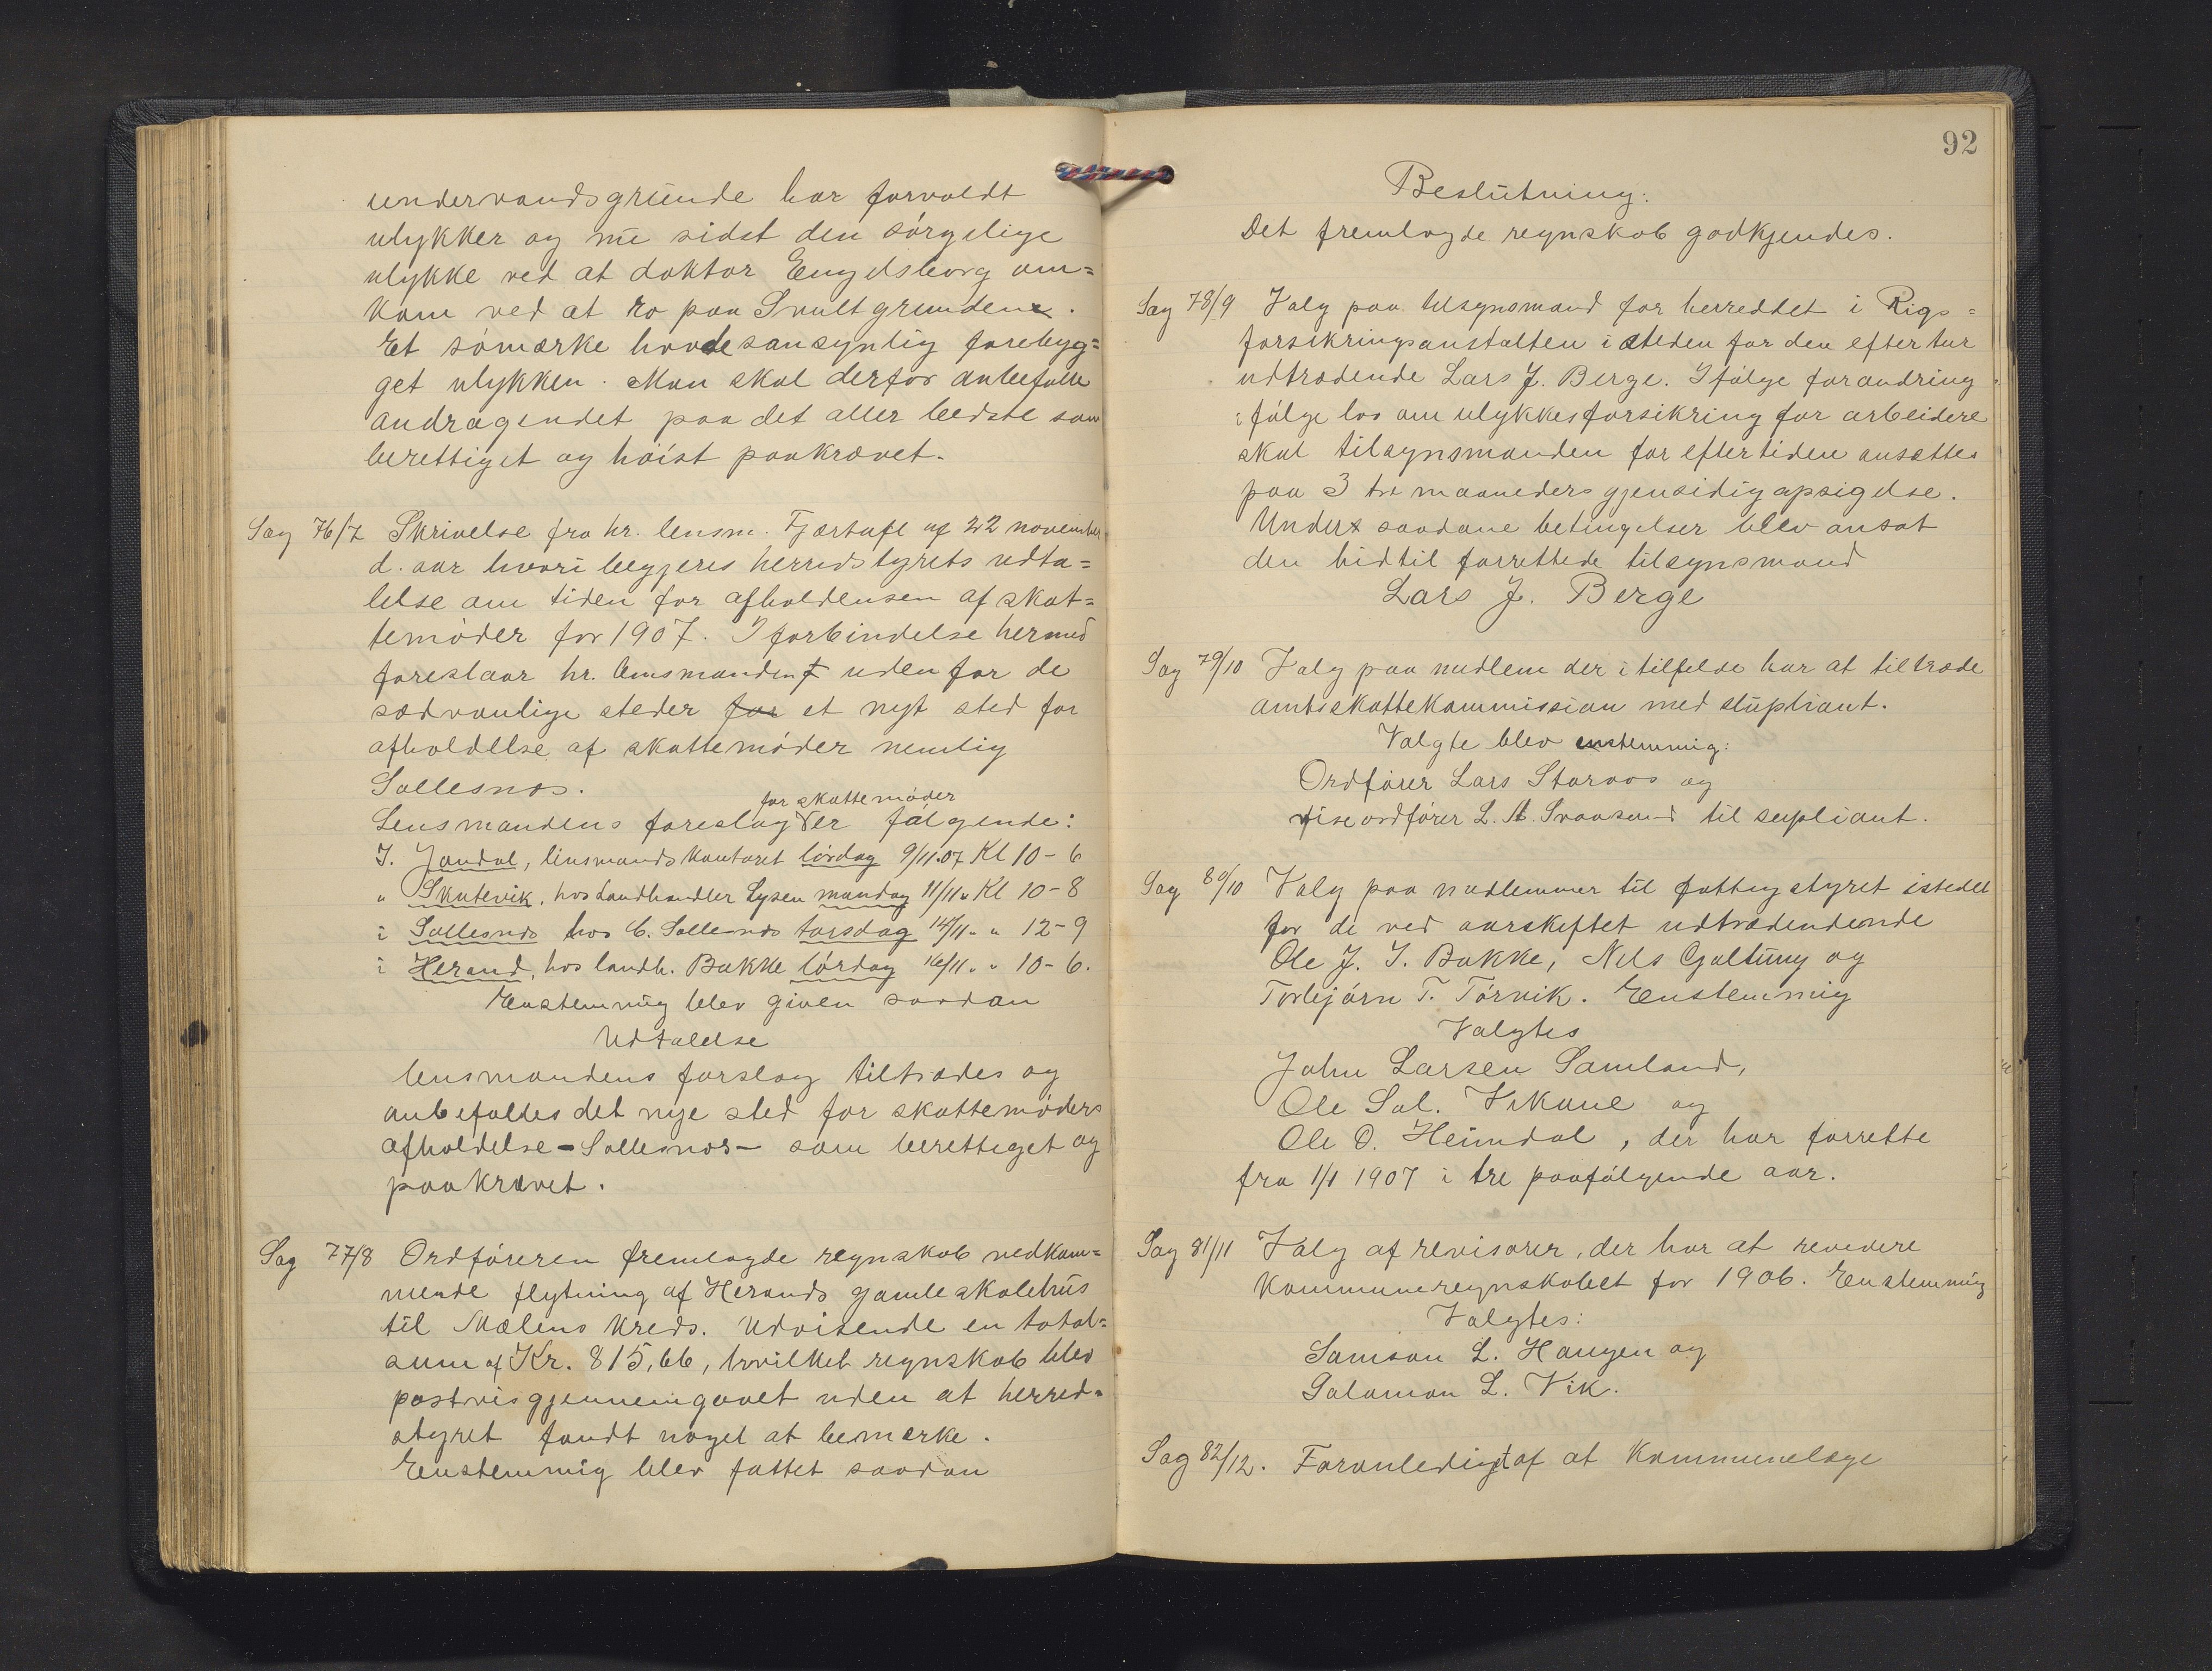 undervandsgrunde har forvoldt
ulykker og nu sidst den sørgelige
ulykke ved at doktor Engelsborg om=
kom ved at ro paa Svultgrunden.
Et sømærke havde sansynlig forebyg=
get ulykken. Man skal derfor anbefale
andragendet paa det aller bedste som
berettiget og høist paakrævet.
Sag 76/7 Skrivelse fra hr. lensm. Fjærtoft af 22 november
d. aar hvori begjæres herredstyrets udta=
lelse om tiden for afholdensen af skat=
temøder for 1907. I forbindelse hermed
foreslaar hr. lensmanden uden for de
sædvanlige steder for et nyt sted for
afholdelse af skattemøder nemlig
Sollesnæs.
for skattemøder
Lensmandens foreslag er følgende:
I. Jondal, linsmandskontoret lørdag 9/11.07 Kl 10-6
" Skutevik, hos Landhandler Lysen mandag 11/11 " Kl 10-8
i Sollesnæs hos C. Sollesnæs torsdag 14/11 " " 12-9
i Herand, hos landh. Bakke lørdag 16/11 " " 10-6.
Enstemmig blev given saadan
Udtalelse
lensmandens forslag tiltrædes og
anbefalles det nye sted for skattemøders
afholdelse - Sollesnæs - som berettiget og
paakrævet.
Sag 77/8 Ordføreren fremlagde regnskab vedkom=
mende flytning af Herands gamle skolehus
til Mælens kreds. Udvisende en total=
sum af Kr. 815,66, hvilket regnskab blev
postvis gjennemgaaet uden at herred=
styret fandt noget at bemærke.
Enstemmig blev fattet saadan
92
Beslutning:
Det fremlagde regnskab godkjendes.
Sag 78/9 Valg paa tilsynsmand for herredet i Rigs=
forsikringsanstalten i steden for den efter tur
udtrædende Lars J. Berge. Ifølge forandring
i følge lov om ulykkesforsikring for arbeidere
skal tilsynsmanden for eftertiden ansættes
paa 3 tre maaneders gjensidig opsigelse.
Under saadane betingelser blev ansat
den hidtil forrettede tilsynsmand
Lars J. Berge
Sag 79/10 Valg paa medlem der i tilfelde har at tiltræde
amtsskattekommission med supliant.
Valgte blev enstemmig:
Ordfører Lars Storaas og
viseordfører L. A. Svaasand til supliant.
Sag 80/10 Valg paa medlemmer til fattigstyret istedet
for de ved aarskeftet udtrædendende
Ole J. I. Bakke, Nels Galtung og
Torbjørn T. Tørvik. Enstemmig
Valgtes
John Larsen Samland,
Ole Sal. Vikane og
Ole O. Heimdal, der har forrette
fra 1/1 1907 i tre paafølgende aar.
Sag 81/11 Valg af revisorer, der har at revedere
kommuneregnskabet for 1906. Enstemmig
Valgtes:
Samson L. Haugen og
Salamon L. Vik.
Sag 82/12. Foranledigt af at Kommunelæge